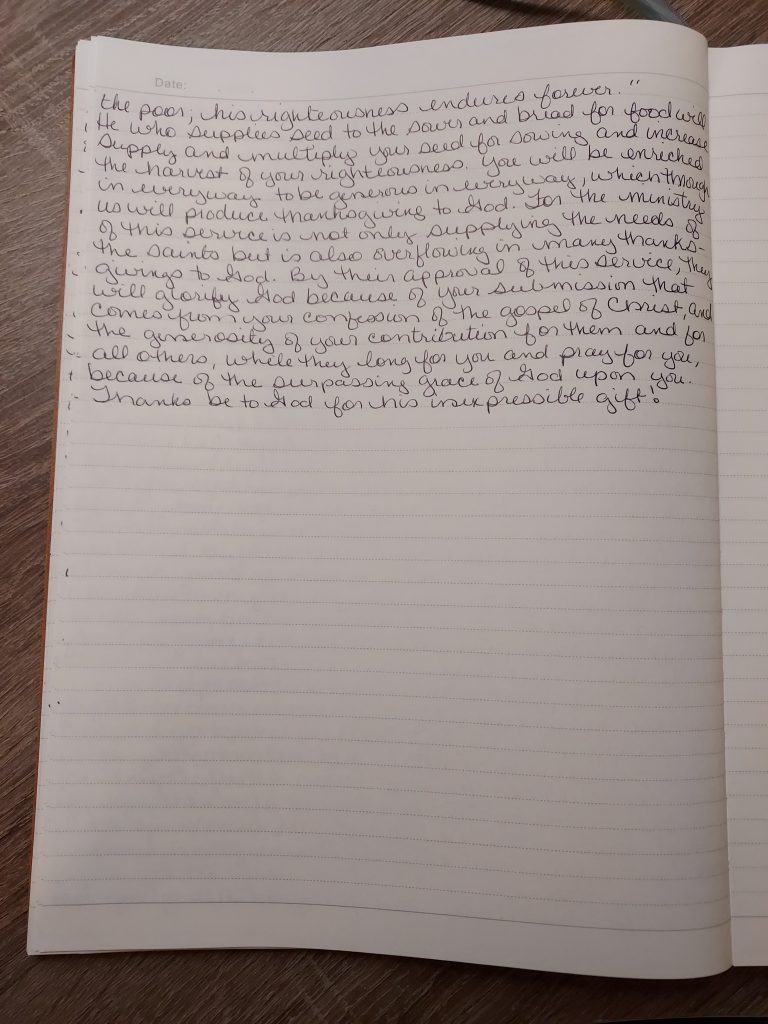 Date:
the poor; his righteousness endures forever."
He who supplies seed to the sower and bread for food will
supply and multiply your seed for sowing and increase
the harvest of your righteousness. You will be enriched
in everyway to be generous in everyway, which through
us will produce thanksgiving to God. For the ministry
of this service is not only supplying the needs of
the saints but is also overflowing in many thanks-
givings to God. By their approval of this service, they
will glorify God because of your submission that
comes from your confession of the gospel of Christ, and
the generosity of your contribution for them and for
all others, while they long for you and pray for you,
because of the surpassing grace of God upon you.
Thanks be to God for his inexpressible gift!